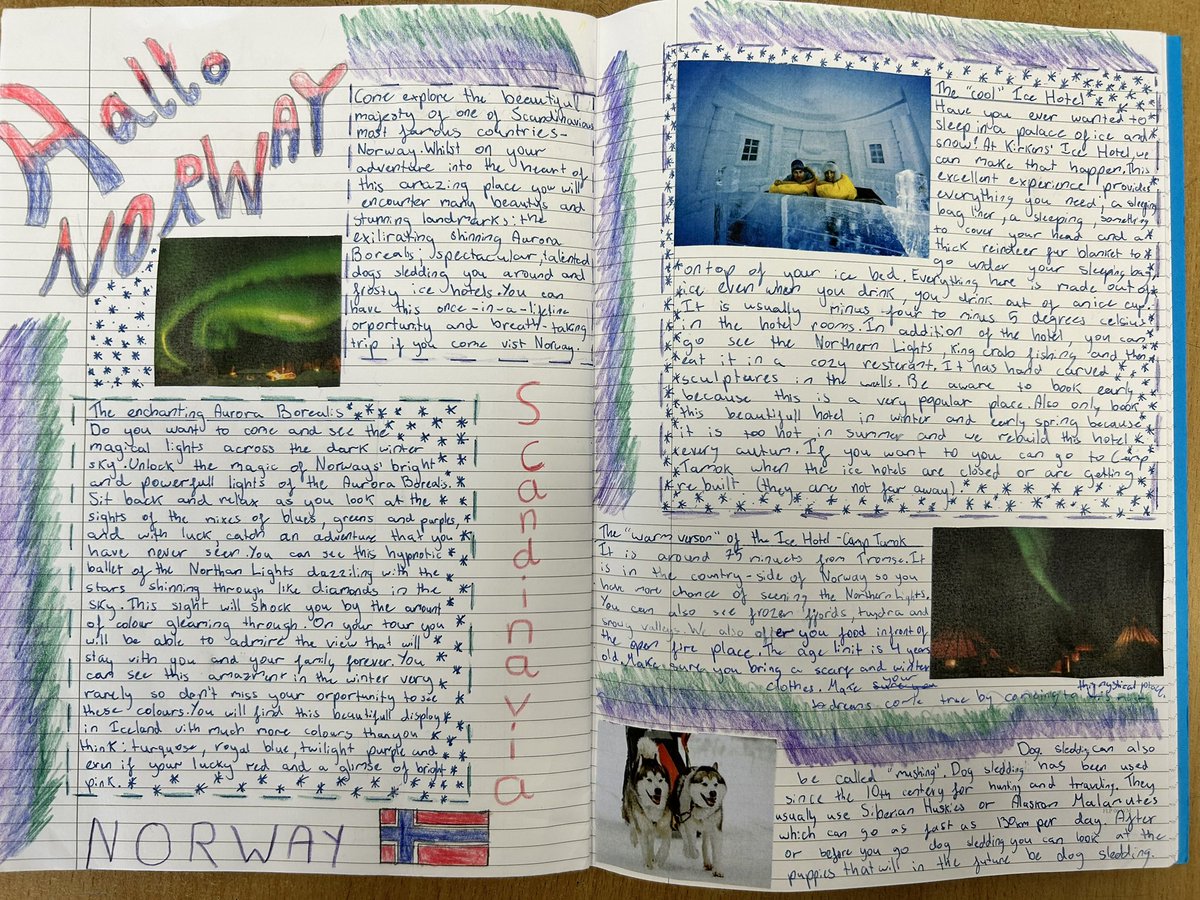 Hallo
NORWAY
Come explore the beautiful
majesty of one of Scandinavious
most famous countries-
Norway. Whilst on your
adventure into the heart of
this amazing place you will
encounter many beautys and
stunning landmarks: the
exilirating shinning Aurora
Borealis, spectacular, talented
dogs sledding you around and
frosty ice hotels. You can
have this once-in-a-lifetime
orportunity and breath-taking
trip if you come vist Norway.
The enchanting Aurora Borealis
Do you want to come and see the
magical lights across the dark winter
sky. Unlock the magic of Norways' bright
and powerfull lights of the Aurora Borealis.
Sit back and relax as you look at the
sights of the mixes of blues, greens and purples,
and with luck, catch an adventure that you
have never seen. You can see this hypnotic
ballet of the Northan Lights dazziling with the
stars shinning through like diamonds in the
sky. This sight will shock you by the amount
of colour gleaming through. On your tour you
will be able to admire the view that will
stay with you and your family forever. You
can see this in the winter very
rarely so don't miss your orportunity to see
these colours. You will find this beautifull display
in Iceland with much more colours than you
think: turquose, royal blue, twilight purple and
even if your lucky red and a glimse of bright
pink.
NORWAY
Scandinavia
The "cool" Ice Hotel
Have you ever wanted to
sleep in a palace of ice and
snow! At Kirkens' Ice Hotel, we
can make that happen. This
excellent experience provides
everything you need; a sleeping
bag liner, a sleeping, something
to cover your head and a
thick reindeer fur blanket to
go under your sleeping bag
ontop of your ice bed. Everything here is made out of
ice even when you drink, you drink out of an ice cup.
It is usually minus four to minus 5 degrees celsius
in the hotel rooms. In addition of the hotel, you can
go see the Northern Lights, King crab fishing and then
eat it in a cozy resterant. It has hand carved
sculptures in the walls. Be aware to book early
because this is a very popular place. Also only book
this beautifull hotel in winter and early spring because
it is too hot in summer and we rebuild this hotel
every autum. If you want to you can go to Camp
Tamok when the ice hotels are closed or are getting
re built. (they are not far away)
The "warm verson" of the Ice Hotel - Camp Tamok
It is around 75 minuets from Tromse. It
is in the country-side of Norway so you
have more chance of seening the Northern Lights.
You can also see frozen fjords, tundra and
snowy valleys. We also offer you food infront of
the open fire place. The age limit is 4 years
old. Make sure you bring a scarf and winter
clothes. Make your
dreams come true by coming to
this mystical place.
Dog sledding can also
be called "mushing". Dog sledding has been used
since the 10th centery for hunting and traveling. They
usually use Siberian Huskies or Alaskan Malamutes
which can go as fast as 130km per day. After
or before you go dog sledding you can look at the
puppies that will in the future be dog sledding.